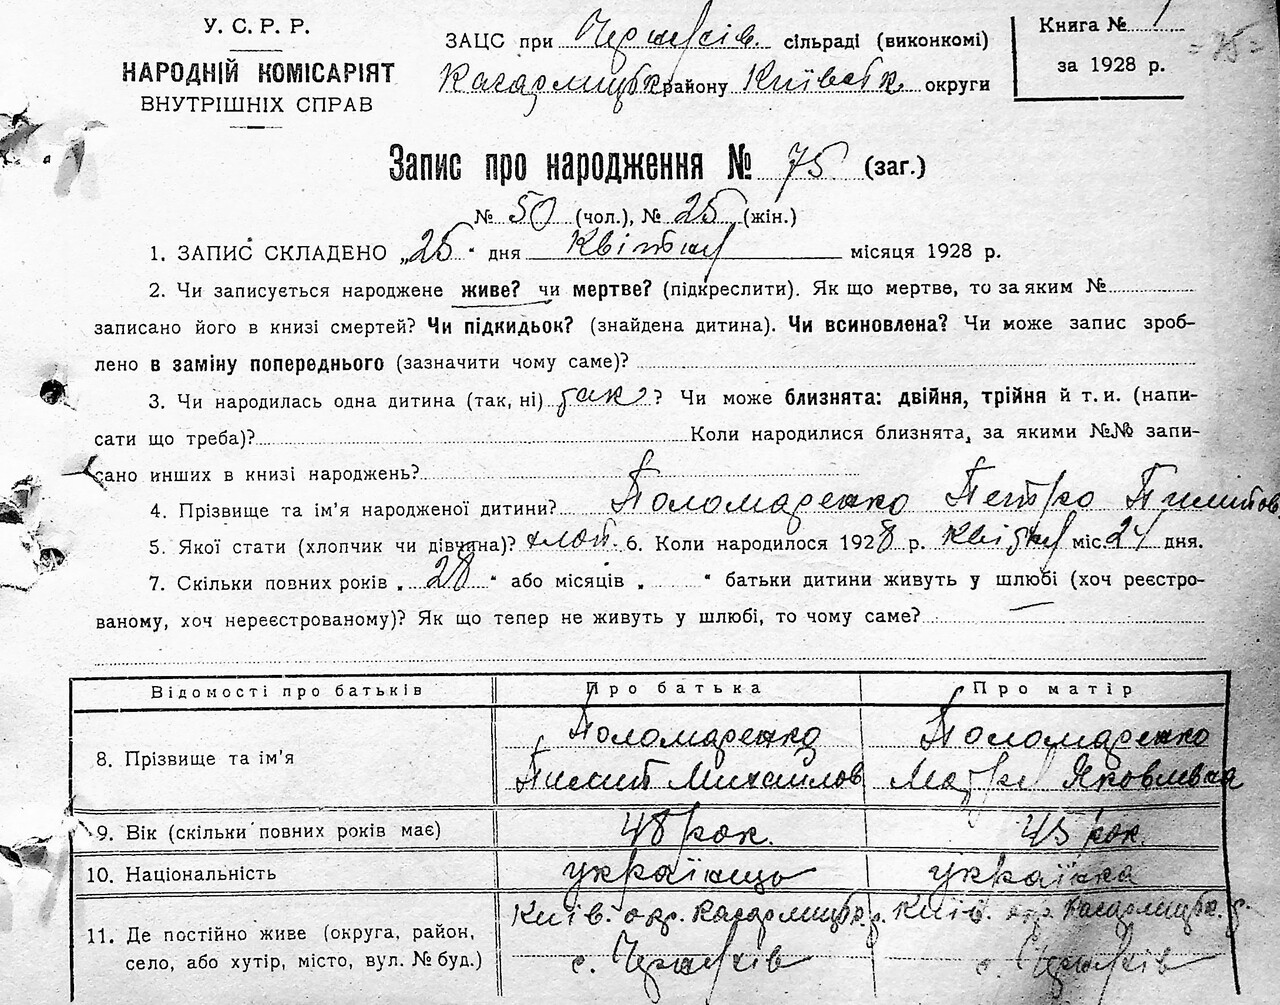 У. С. Р. Р.
НАРОДНІЙ КОМІСАРІЯТ
ВНУТРІШНІХ СПРАВ
ЗАЦС при сільраді (виконкомі)
Кагарлицьк. району Київськ. округи
Книга № 1
за 1928 р.
= 75 =
Запис про народження № 75 (заг.)
№ 50 (чол.), № 25 (жін.)
1. ЗАПИС СКЛАДЕНО „25“ дня Квітня місяця 1928 р.
2. Чи записується народжене живе? чи мертве? (підкреслити). Як що мертве, то за яким №
записано його в книзі смертей? Чи підкидьок? (знайдена дитина). Чи всиновлена? Чи може запис зроб-
лено в заміну попереднього (зазначити чому саме)?
3. Чи народилась одна дитина (так, ні) так? Чи може близнята: двійня, трійня й т. и. (напи-
сати що треба)? Коли народилися близнята, за якими №№ запи-
сано инших в книзі народжень?
4. Прізвище та ім'я народженої дитини? Поломаренко Петро Пилипов
5. Якої стати (хлопчик чи дівчина)? хлоп. 6. Коли народилося 1928 р. Квітня міс. 24 дня.
7. Скільки повних років „28“ або місяців „ “ батьки дитини живуть у шлюбі (хоч реєстро-
ваному, хоч нереєстрованому)? Як що тепер не живуть у шлюбі, то чому саме? —
Відомості про батьків Про батька Про матір
8. Прізвище та ім'я Поломаренко Поломаренко
Пилип Михайлов Яковлевна
9. Вік (скільки повних років має) 48 рок. 45 рок.
10. Національність українець українка
11. Де постійно живе (округа, район, Київ. окр. Кагарлицьк. р. Київ. окр. Кагарлицьк. р.
село, або хутір, місто, вул. № буд.) с. с.